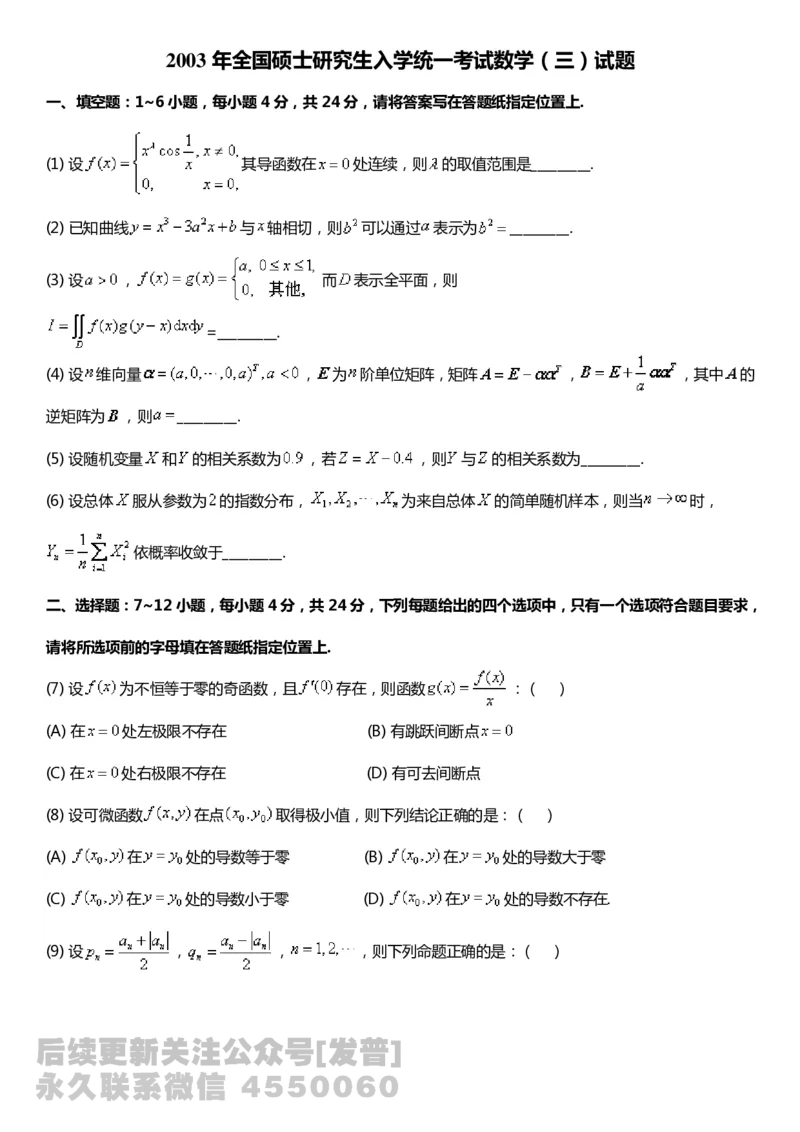 2003 年全国硕士研究生入学统一考试数学(三)试题
一、填空题:1~6 小题,每小题 4 分,共 24 分,请将答案写在答题纸指定位置上.
(1) 设 f(x) = { x^λ cos 1/x, x ≠ 0, 0, x = 0, 其导函数在 x = 0 处连续,则 λ 的取值范围是________.
(2) 已知曲线 y = x³ − 3a²x + b 与 x 轴相切,则 b² 可以通过 a 表示为 b² = ________.
(3) 设 a > 0 , f(x) = g(x) = { a, 0 ≤ x ≤ 1, 0, 其他, 而 D 表示全平面,则
I = ∬_D f(x)g(y − x)dxdy = ________.
(4) 设 n 维向量 α = (a,0,⋯,0,a)^T, a < 0 , E 为 n 阶单位矩阵,矩阵 A = E − αα^T , B = E + 1/a αα^T ,其中 A 的
逆矩阵为 B ,则 a = ________.
(5) 设随机变量 X 和 Y 的相关系数为 0.9 ,若 Z = X − 0.4 ,则 Y 与 Z 的相关系数为________.
(6) 设总体 X 服从参数为 2 的指数分布, X₁, X₂, ⋯, Xₙ 为来自总体 X 的简单随机样本,则当 n → ∞ 时,
Yₙ = 1/n ∑_{i=1}^{n} X_i² 依概率收敛于________.
二、选择题:7~12 小题,每小题 4 分,共 24 分,下列每题给出的四个选项中,只有一个选项符合题目要求,
请将所选项前的字母填在答题纸指定位置上.
(7) 设 f(x) 为不恒等于零的奇函数,且 f′(0) 存在,则函数 g(x) = f(x)/x :( )
(A) 在 x = 0 处左极限不存在 (B) 有跳跃间断点 x = 0
(C) 在 x = 0 处右极限不存在 (D) 有可去间断点
(8) 设可微函数 f(x,y) 在点 (x₀,y₀) 取得极小值,则下列结论正确的是:( )
(A) f(x₀,y) 在 y = y₀ 处的导数等于零 (B) f(x₀,y) 在 y = y₀ 处的导数大于零
(C) f(x₀,y) 在 y = y₀ 处的导数小于零 (D) f(x₀,y) 在 y = y₀ 处的导数不存在.
(9) 设 pₙ = (aₙ + |aₙ|)/2 , qₙ = (aₙ − |aₙ|)/2 , n = 1,2,⋯ ,则下列命题正确的是:( )
后续更新关注公众号[发普]
永久联系微信 4550060